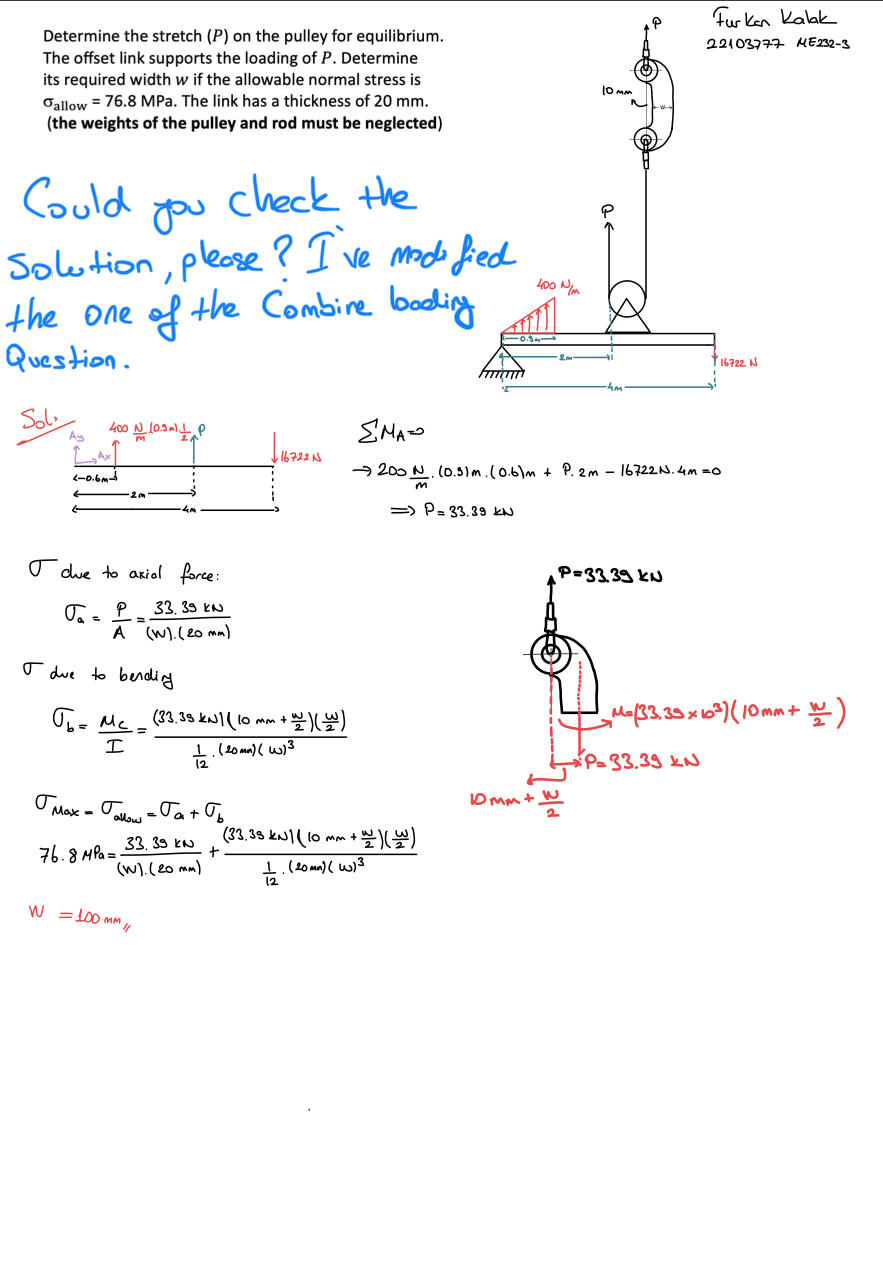 Furkan Kalak
22103777 ME232-3
Determine the stretch (P) on the pulley for equilibrium.
The offset link supports the loading of P. Determine
its required width w if the allowable normal stress is
σallow = 76.8 MPa. The link has a thickness of 20 mm.
(the weights of the pulley and rod must be neglected)
P
10 mm
w
Could you check the
Solution, please? I've modified
the one of the Combine loading
Question.
P
400 N/m
0.9m
2m
16722 N
4m
Sol.
Ay
Ax
400 N/m (0.9m) 1/2
P
16722 N
0.6m
2m
4m
ΣMA=0
→ 200 N/m . (0.9)m . (0.6)m + P. 2m - 16722N. 4m = 0
⟹ P = 33.39 kN
σ due to axial force:
σa = P/A = 33.39 kN / (W).(20 mm)
σ due to bending
σb = Mc/I = (33.39 kN)(10 mm + w/2)(w/2) / 1/12 . (20mm)(w)³
σMax = σallow = σa + σb
76.8 MPa = 33.39 kN / (W).(20 mm) + (33.39 kN)(10 mm + w/2)(w/2) / 1/12 . (20mm)(w)³
W = 100 mm //
P = 33.39 kN
M=(33.39 x 10³)(10mm + w/2)
P= 33.39 kN
10mm + w/2